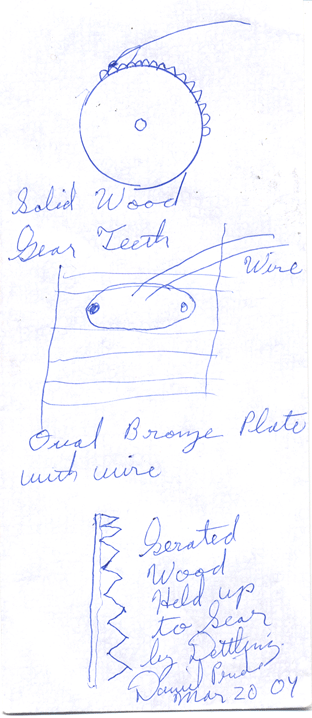 Solid Wood
Gear Teeth
Wire
Oval Bronze Plate
with wire
Serated
Wood
Held up
to Gear
by Dettling.
Daniel
Mar 20 04